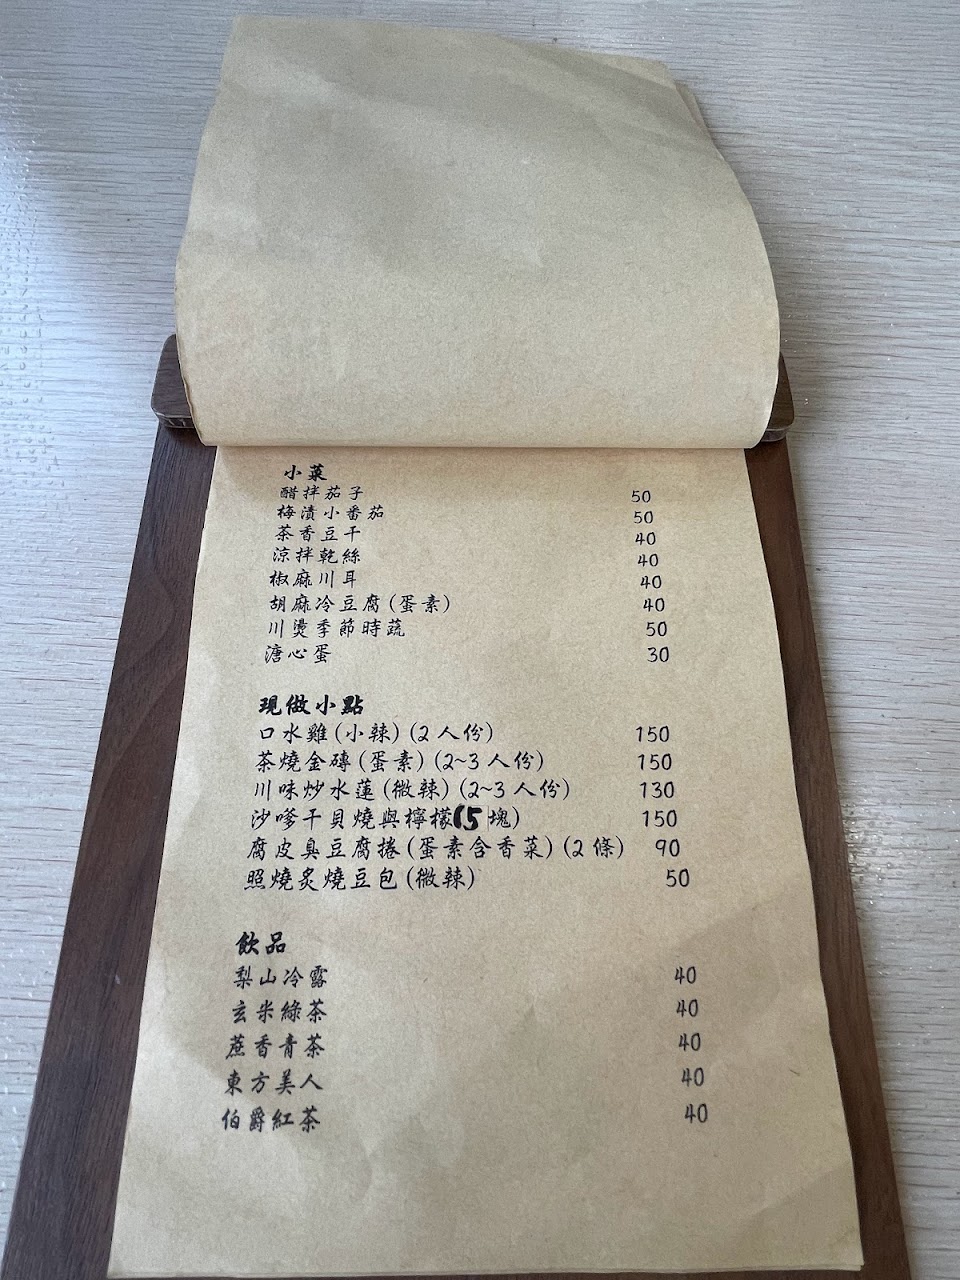 小菜
醋拌茄子 50
梅漬小番茄 50
茶香豆干 40
涼拌乾絲 40
椒麻川耳 40
胡麻冷豆腐(蛋素) 40
川燙季節時蔬 50
溏心蛋 30
現做小點
口水雞(小辣)(2人份) 150
茶燒金磚(蛋素)(2~3人份) 150
川味炒水蓮(微辣)(2~3人份) 130
沙嗲干貝燒與檸檬(5塊) 150
腐皮臭豆腐捲(蛋素含香菜)(2條) 90
照燒炙燒豆包(微辣) 50
飲品
梨山冷露 40
玄米綠茶 40
蔗香青茶 40
東方美人 40
伯爵紅茶 40